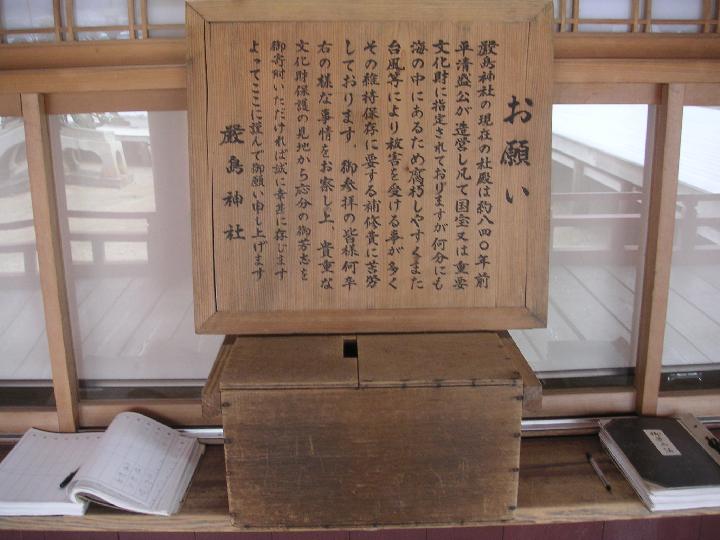 お願い
嚴島神社の現在の社殿は約八四〇年前
平清盛公が造営し凡て国宝又は重要
文化財に指定されておりますが何分にも
海の中にあるため腐朽しやすくまた
台風等により被害を受ける事が多く
その維持保存に要する補修費に苦労
しております。御参拝の皆様何卒
右の様な事情をお察し上、貴重な
文化財保護の見地から応分の御芳志を
御寄附いただければ誠に幸甚に存じます
よってここに謹んで御願い申し上げます
嚴島神社